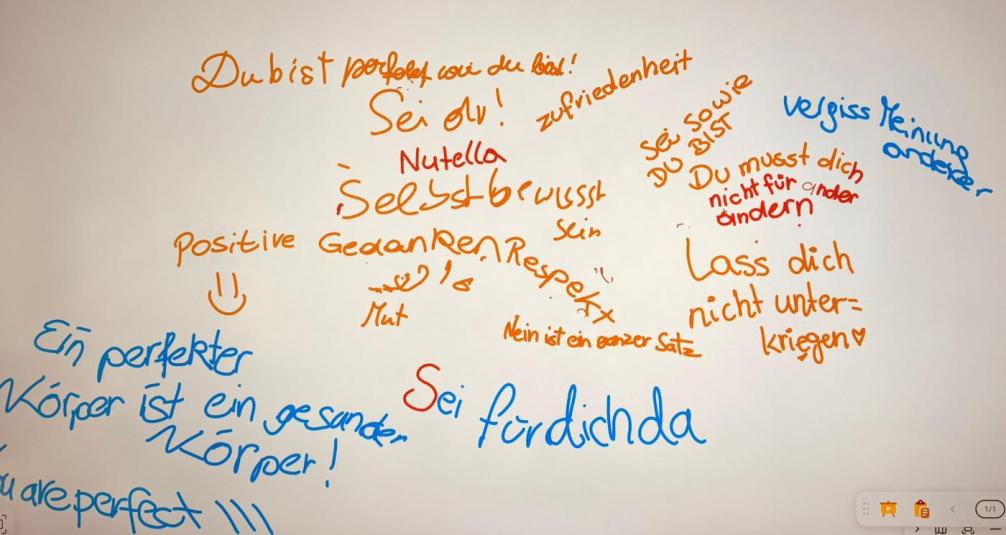 Du bist perfekt wie du bist!
Sei du!
zufriedenheit
Sei Sowie
DU BIST
vergiss Meinung
anderer
Nutella
Du musst dich
nicht für ander
ändern
Selbstbewusst
sein
Positive Gedanken
Respekt
Mut
Lass dich
nicht unter=
kriegen
Nein ist ein ganzer Satz
Ein perfekter
Körper ist ein gesunder
Körper!
Sei für dich da
u are perfect \\\
1/1